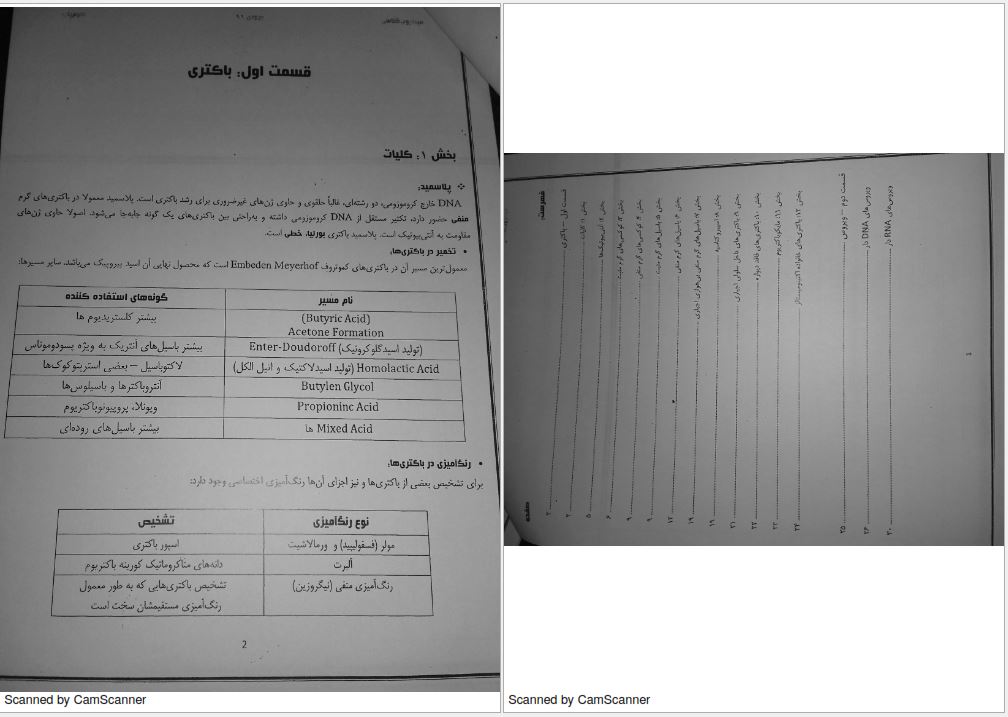 میکروب‌شناسی
ورودی ۹۹
قسمت اول: باکتری
بخش ۱: کلیات
❖ پلاسمید:
DNA خارج کروموزومی، دو رشته‌ای، غالباً حلقوی و حاوی ژن‌های غیرضروری برای رشد باکتری است. پلاسمید معمولا در باکتری‌های گرم
منفی حضور دارد، تکثیر مستقل از DNA کروموزومی داشته و به‌راحتی بین باکتری‌های یک گونه جابه‌جا می‌شود. اصولا حاوی ژن‌های
مقاومت به آنتی‌بیوتیک است. پلاسمید باکتری بورلیا، خطی است.
• تخمیر در باکتری‌ها:
معمول‌ترین مسیر آن در باکتری‌های کموتروف Embeden Meyerhof است که محصول نهایی آن اسید پیروییک می‌باشد. سایر مسیرها:
نام مسیر
گونه‌های استفاده کننده
(Butyric Acid)
Acetone Formation
بیشتر کلستریدیوم ها
Enter-Doudoroff (تولید اسیدگلوکرونیک)
بیشتر باسیل‌های آنتریک به ویژه پسودوموناس
Homolactic Acid (تولید اسیدلاکتیک و اتیل الکل)
لاکتوباسیل – بعضی استرپتوکوک‌ها
Butylen Glycol
آنتروباکترها و باسیلوس‌ها
Propioninc Acid
ویونلا، پروپیونوباکتریوم
Mixed Acid ها
بیشتر باسیل‌های روده‌ای
• رنگ‌آمیزی در باکتری‌ها:
برای تشخیص بعضی از باکتری‌ها و نیز اجزای آن‌ها رنگ‌آمیزی اختصاصی وجود دارد:
نوع رنگ‌آمیزی
تشخیص
مولر (فسفولیپید) و ورمالاشیت
اسپور باکتری
آلبرت
دانه‌های متاکروماتیک کورینه باکتریوم
رنگ‌آمیزی منفی (نیگروزین)
تشخیص باکتری‌هایی که به طور معمول
رنگ‌آمیزی مستقیمشان سخت است
2
Scanned by CamScanner
فهرست:
صفحه
قسمت اول – باکتری ۲
بخش ۱: کلیات ۲
بخش ۲: آنتی‌بیوتیک‌ها ۵
بخش ۳: کوکسی‌های گرم مثبت ۶
بخش ۴: کوکسی‌های گرم منفی ۹
بخش ۵: باسیل‌های گرم مثبت ۹
بخش ۶: باسیل‌های گرم منفی ۱۲
بخش ۷: باسیل‌های گرم منفی بی‌هوازی اجباری ۱۹
بخش ۸: اسپیروکتاسیه ۱۹
بخش ۹: باکتری‌های داخل سلولی اجباری ۲۱
بخش ۱۰: باکتری‌های فاقد دیواره ۲۲
بخش ۱۱: مایکوباکتریوم ۲۲
بخش ۱۲: باکتری‌های خانواده اکتینومیستاز ۲۴
قسمت دوم – ویروس ۲۵
ویروس‌های DNA دار ۲۶
ویروس‌های RNA دار ۳۰
1
Scanned by CamScanner